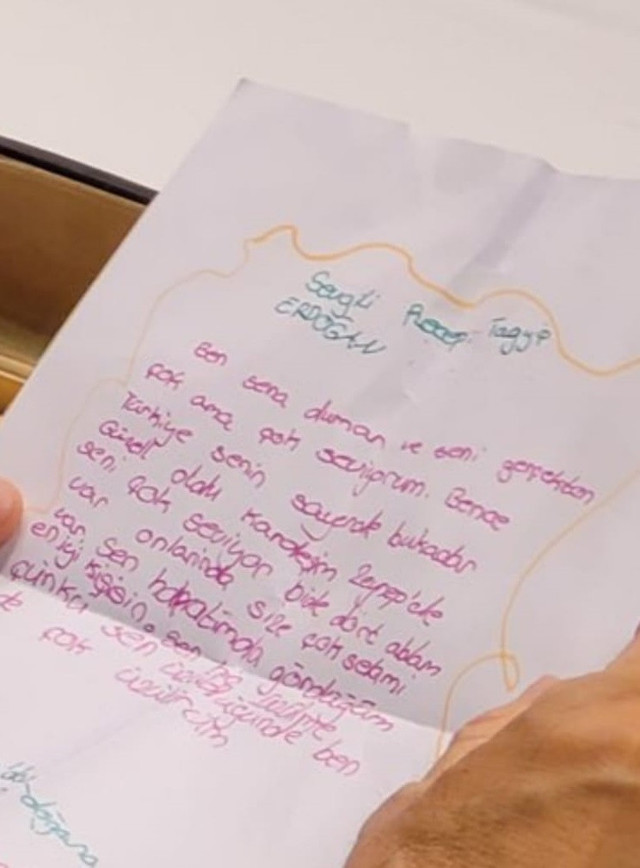 Sevgili Recep Tayyip
ERDOĞAN
Ben sena duman ve seni gerçekten
çok ama çok seviyorum. Bence
Türkiye senin sayende bukadar
Güzell oldu Kardeşim Zeynep'de
seni çok seviyor birde dört ablam
var onlarında size çok selamı
var. Sen hayatımda gördüğüm
en iyi kişisin. Sen hiç üzülme
çünkü sen üzüldüğünde ben
de çok üzülürüm